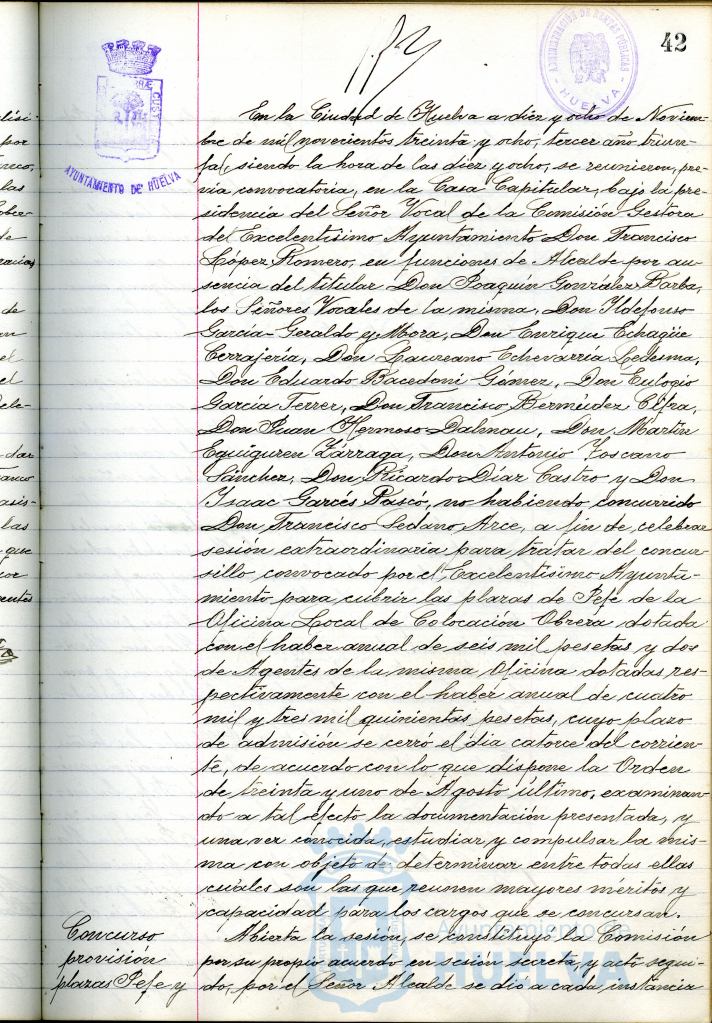 42
ADMINISTRACIÓN DE RENTAS PÚBLICAS
HUELVA
AYUNTAMIENTO DE HUELVA
En la Ciudad de Huelva a diez y ocho de Noviem-
bre de mil novecientos treinta y ocho, tercer año triun-
fal, siendo la hora de las diez y ocho, se reunieron, pre-
via convocatoria, en la Casa Capitular, bajo la pre-
sidencia del Señor Vocal de la Comisión Gestora
del Excelentísimo Ayuntamiento Don Francisco
López Romero, en funciones de Alcalde por au-
sencia del titular Don Joaquín González Barba,
los Señores Vocales de la misma, Don Ildefonso
García-Geraldo y Mora, Don Enrique Echagüe
Cerrajería, Don Laureano Echevarría Ledesma,
Don Eduardo Bacedoni Gómez, Don Eulogio
García Ferrer, Don Francisco Bermúdez Cifra,
Don Juan Hermoso Dalmau, Don Martín
Eguiguren Zárraga, Don Antonio Toscano
Sánchez, Don Ricardo Díaz Castro y Don
Isaac Garcés Pascó, no habiendo concurrido
Don Francisco Sedano Arce, a fin de celebrar
sesión extraordinaria para tratar del concur-
sillo convocado por el Excelentísimo Ayunta-
miento para cubrir las plazas de Jefe de la
Oficina Local de Colocación Obrera dotada
con el haber anual de seis mil pesetas y dos
de Agentes de la misma Oficina dotadas res-
pectivamente con el haber anual de cuatro
mil y tres mil quinientas pesetas, cuyo plazo
de admisión se cerró el día catorce del corrien-
te, de acuerdo con lo que dispone la Orden
de treinta y uno de Agosto último, examinan-
do a tal efecto la documentación presentada, y
una vez conocida, estudiar y compulsar la mis-
ma con objeto de determinar entre todas ellas
cuales son las que reunen mayores méritos y
capacidad para los cargos que se concursan.
Concurso
provisión
plazas Jefe y
Abierta la sesión, se constituyó la Comisión
por su propio acuerdo en sesión secreta, y acto segui-
do, por el Señor Alcalde se dio a cada instancia
Ayuntamiento de
HUELVA